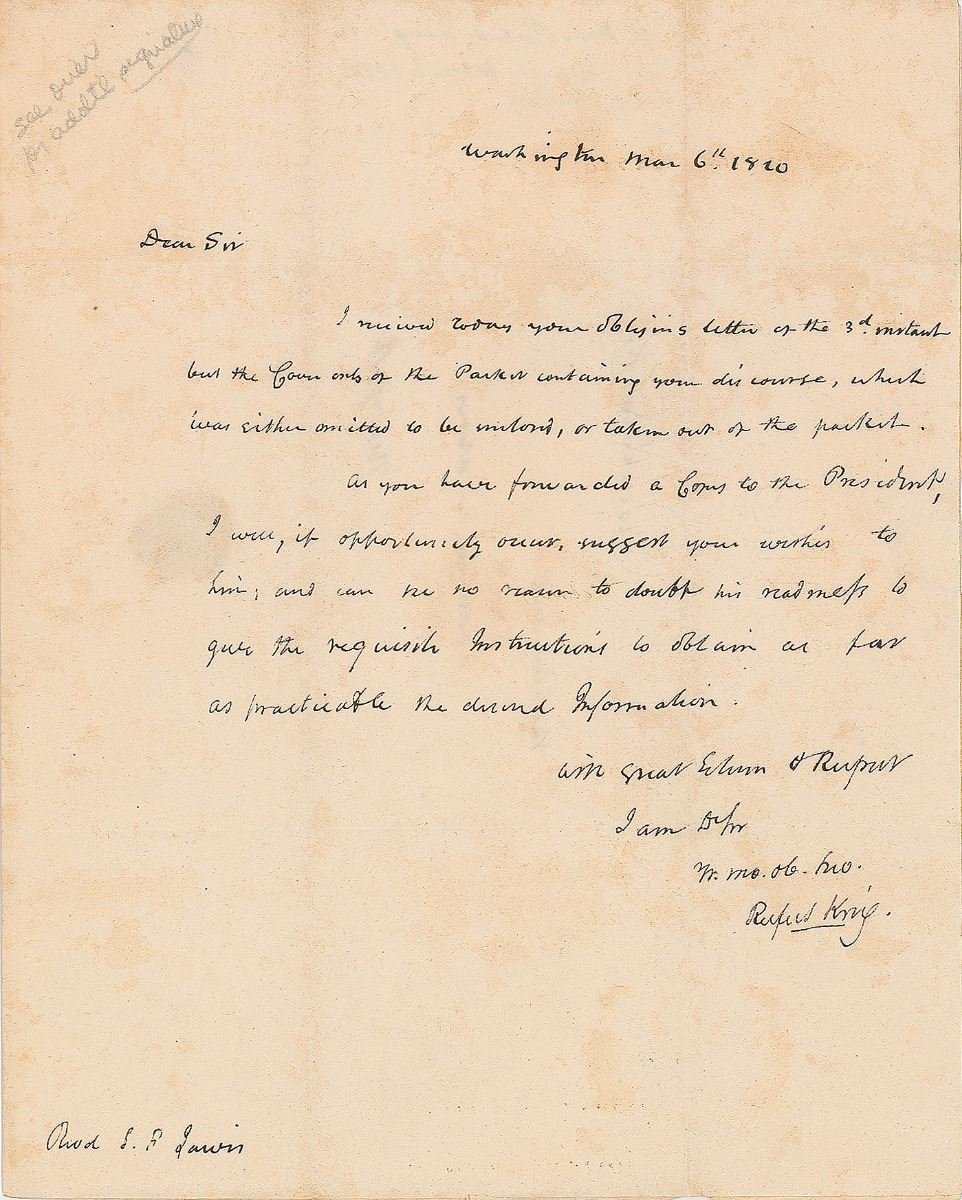 see over
for addtl signature
Washington Mar 6th. 1820
Dear Sir
I received today your obliging letter of the 3d. instant
but the Cover only of the Packet containing your discourse, which
was either omitted to be inclosed, or taken out of the packet.
As you have forwarded a Copy to the President,
I will, if opportunity occur, suggest your wishes to
him; and can see no reason to doubt his readiness to
give the requisite Instructions to obtain as far
as practicable the desired Information.
with great Esteem & Respect
I am D Sir
Yr. mo. ob. Ser.
Rufus King.
Revd S. F. Jarvis